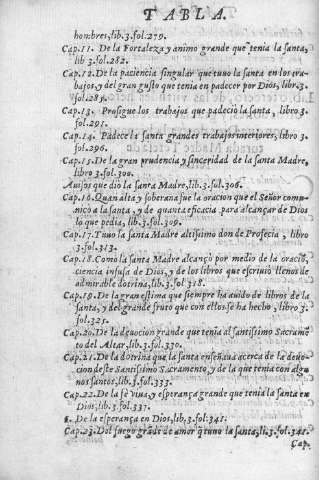 TABLA.
hombres, lib.3. fol.279.
Cap.11. De la Fortaleza y animo grande que tenia la santa,
lib 3. fol.282.
Cap.12. De la paciencia singular que tuuo la santa en los tra-
bajos, y del gran gusto que tenia en padecer por Dios, libr.3.
fol.285.
Cap.13. Prosigue los trabajos que padeciò la santa, libro 3.
fol.291.
Cap.14. Padece la santa grandes trabajos interiores, libro 3.
fol.296.
Cap.15. De la gran prudencia y sinceridad de la santa Madre,
libro 3. fol.300.
Auisos que dio la santa Madre, lib.3. fol.306.
Cap.16. Quan alta y soberana fue la oracion que el Señor comu-
nicò a la santa, y de quanta eficacia para alcançar de Dios
lo que pedia, lib.3. fol.309.
Cap.17. Tuuo la santa Madre altissimo don de Profecia, libro
3. fol.313.
Cap.18. Como la santa Madre alcançò por medio de la oraciõ,
ciencia infusa de Dios, y de los libros que escriuio llenos de
admirable dotrina, lib.3. fol 318.
Cap.19. De la gran estima que siempre ha auido de libros de la
santa, y del grande fruto que con ellos se ha hecho, libro 3.
fol.325.
Cap.20. De la deuocion grande que tenia al santissimo Sacramẽ
to del Altar, lib.3. fol.330.
Cap.21. De la dotrina que la santa enseñaua acerca de la deuo-
cion deste Santissimo Sacramento, y de la que tenia con algu
nos santos, lib.3. fol.333.
Cap.22. De la fè viua, y esperança grande que tenia la santa en
Dios, lib.3. fol.337.
§. De la esperança en Dios, lib.3. fol.341.
Cap.23. Del fuego grãde de amor q̃ tuuo la santa, li.3. fol.345.
Cap.